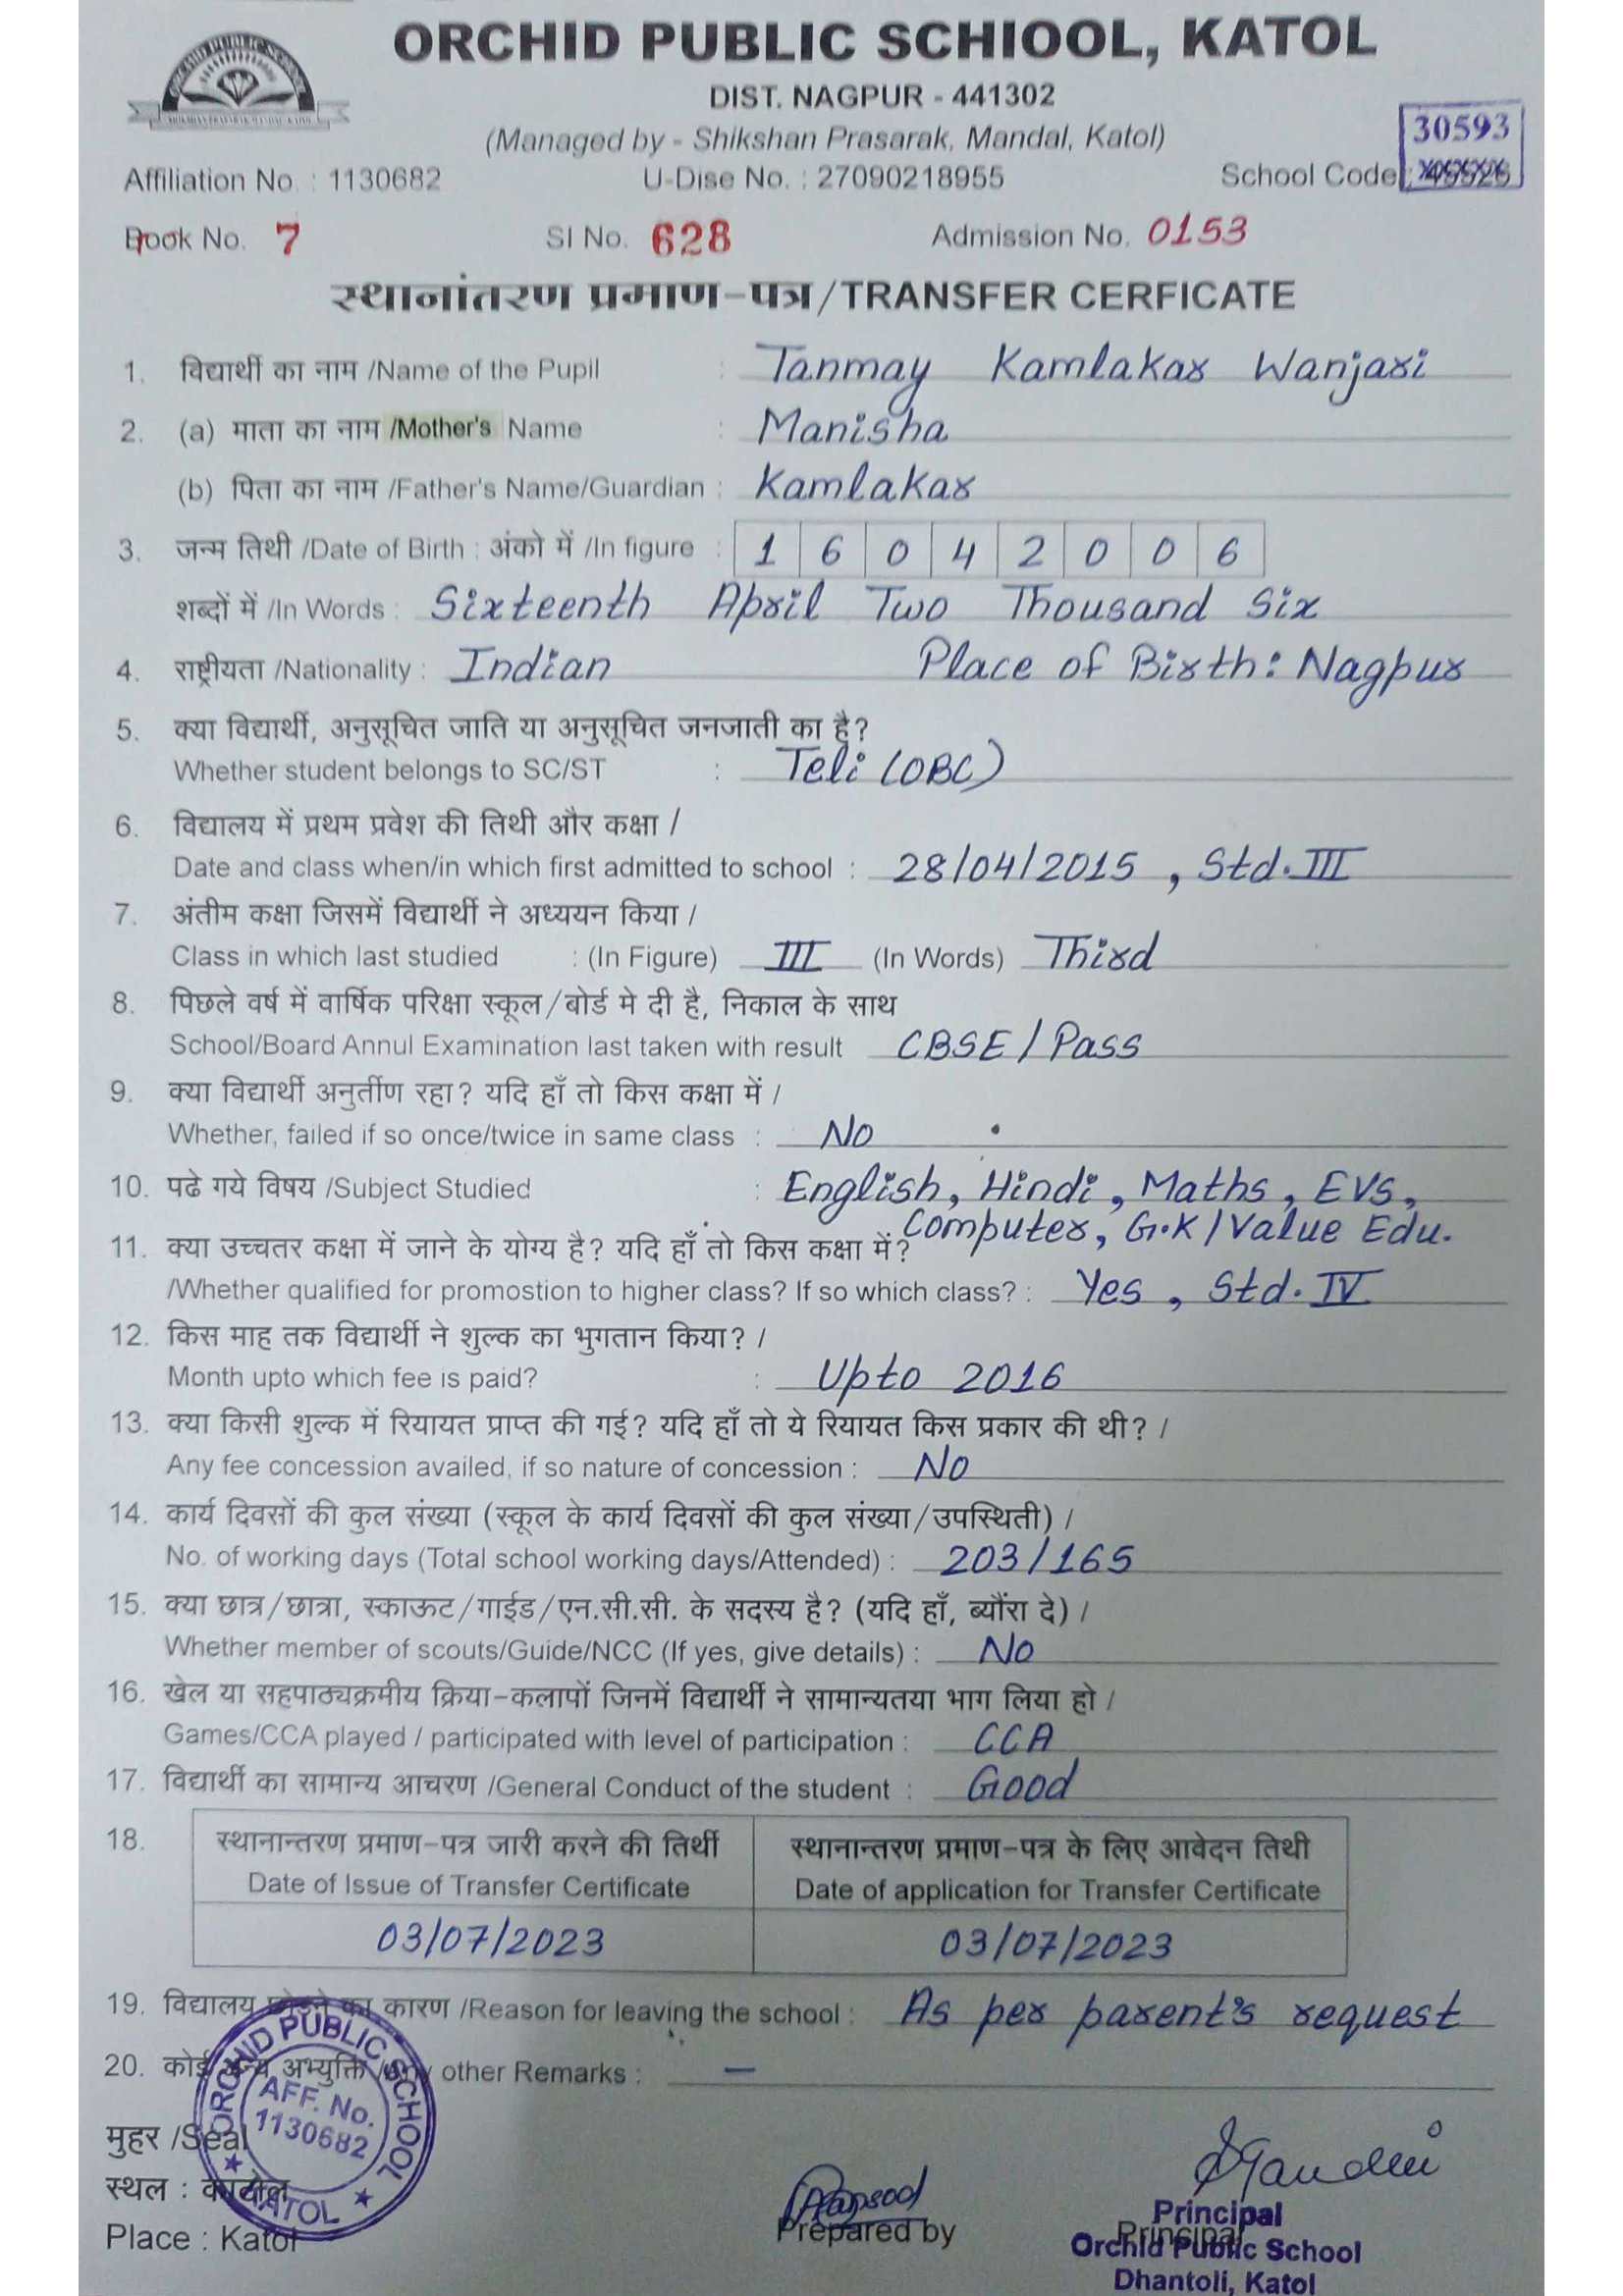 ORCHID PUBLIC SCHIOOL, KATOL
DIST. NAGPUR - 441302
(Managed by - Shikshan Prasarak, Mandal, Katol)
30593
Affiliation No. : 1130682 U-Dise No. : 27090218955 School Code :
Book No. 7 SI No. 628 Admission No. 0153
स्थानांतरण प्रमाण-पत्र/TRANSFER CERFICATE
1. विद्यार्थी का नाम /Name of the Pupil : Tanmay Kamlakar Wanjari
2. (a) माता का नाम /Mother's Name : Manisha
(b) पिता का नाम /Father's Name/Guardian : Kamlakar
3. जन्म तिथी /Date of Birth : अंको में /In figure : 1 6 0 4 2 0 0 6
शब्दों में /In Words : Sixteenth April Two Thousand Six
4. राष्ट्रीयता /Nationality : Indian Place of Birth: Nagpur
5. क्या विद्यार्थी, अनुसूचित जाति या अनुसूचित जनजाती का है?
Whether student belongs to SC/ST : Teli (OBC)
6. विद्यालय में प्रथम प्रवेश की तिथी और कक्षा /
Date and class when/in which first admitted to school : 28/04/2015 , Std. III
7. अंतीम कक्षा जिसमें विद्यार्थी ने अध्ययन किया /
Class in which last studied : (In Figure) III (In Words) Third
8. पिछले वर्ष में वार्षिक परिक्षा स्कूल/बोर्ड मे दी है, निकाल के साथ
School/Board Annul Examination last taken with result CBSE / Pass
9. क्या विद्यार्थी अनुर्तीण रहा? यदि हाँ तो किस कक्षा में /
Whether, failed if so once/twice in same class : No
10. पढे गये विषय /Subject Studied : English, Hindi, Maths, EVS,
Computer, G.K / Value Edu.
11. क्या उच्चतर कक्षा में जाने के योग्य है? यदि हाँ तो किस कक्षा में?
/Whether qualified for promostion to higher class? If so which class? : Yes , Std. IV
12. किस माह तक विद्यार्थी ने शुल्क का भुगतान किया? /
Month upto which fee is paid? : Upto 2016
13. क्या किसी शुल्क में रियायत प्राप्त की गई? यदि हाँ तो ये रियायत किस प्रकार की थी? /
Any fee concession availed, if so nature of concession : No
14. कार्य दिवसों की कुल संख्या (स्कूल के कार्य दिवसों की कुल संख्या/उपस्थिती) /
No. of working days (Total school working days/Attended) : 203/165
15. क्या छात्र/छात्रा, स्काऊट/गाईड/एन.सी.सी. के सदस्य है? (यदि हाँ, ब्यौंरा दे) /
Whether member of scouts/Guide/NCC (If yes, give details) : No
16. खेल या सहपाठ्यक्रमीय क्रिया-कलापों जिनमें विद्यार्थी ने सामान्यतया भाग लिया हो /
Games/CCA played / participated with level of participation : CCA
17. विद्यार्थी का सामान्य आचरण /General Conduct of the student : Good
18. स्थानान्तरण प्रमाण-पत्र जारी करने की तिर्थी स्थानान्तरण प्रमाण-पत्र के लिए आवेदन तिथी
Date of Issue of Transfer Certificate Date of application for Transfer Certificate
03/07/2023 03/07/2023
19. विद्यालय छोडने का कारण /Reason for leaving the school : As per parent's request
20. कोई अन्य अभ्युक्ति /Any other Remarks : –
ORCHID PUBLIC SCHOOL
AFF. No.
1130682
KATOL
मुहर /Seal
स्थल : काटोल
Place : Katol
Prepared by
Principal
Principal
Orchid Public School
Dhantoli, Katol